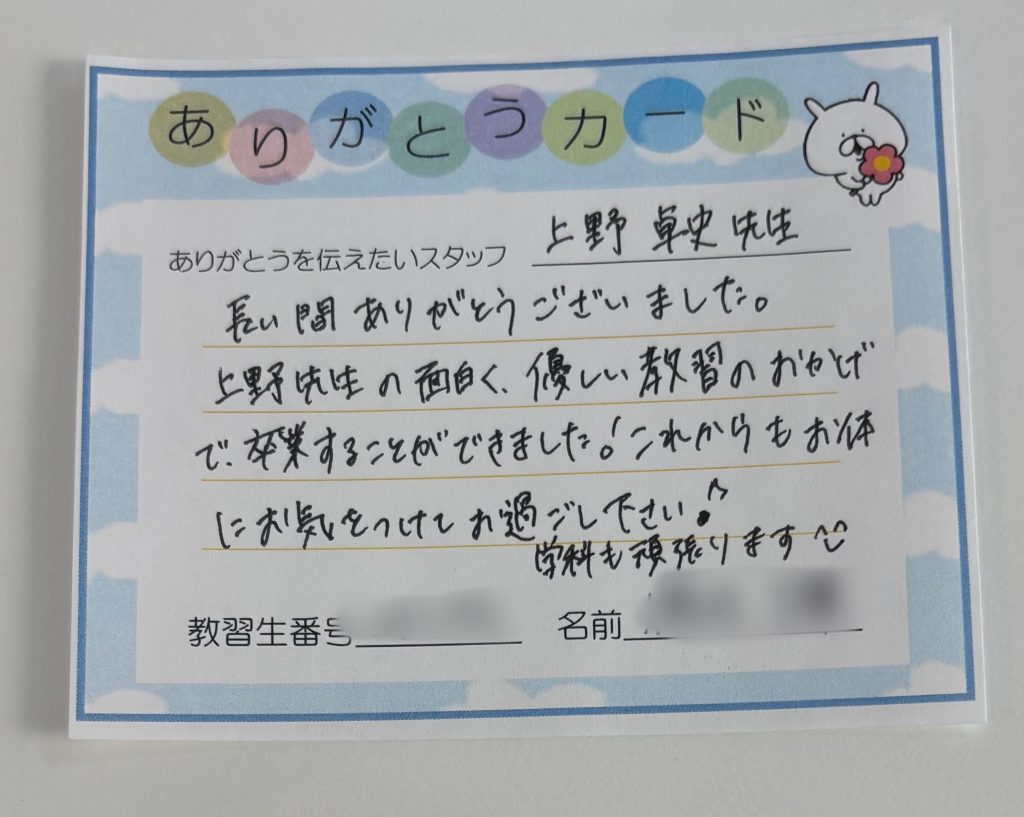 ありがとうカード
ありがとうを伝えたいスタッフ 上野 卓史 先生
長い間ありがとうございました。
上野先生の面白く、優しい教習のおかげ
で、卒業することができました!これからもお体
にお気をつけてお過ごし下さい♪
学科も頑張ります^^
教習生番号
名前